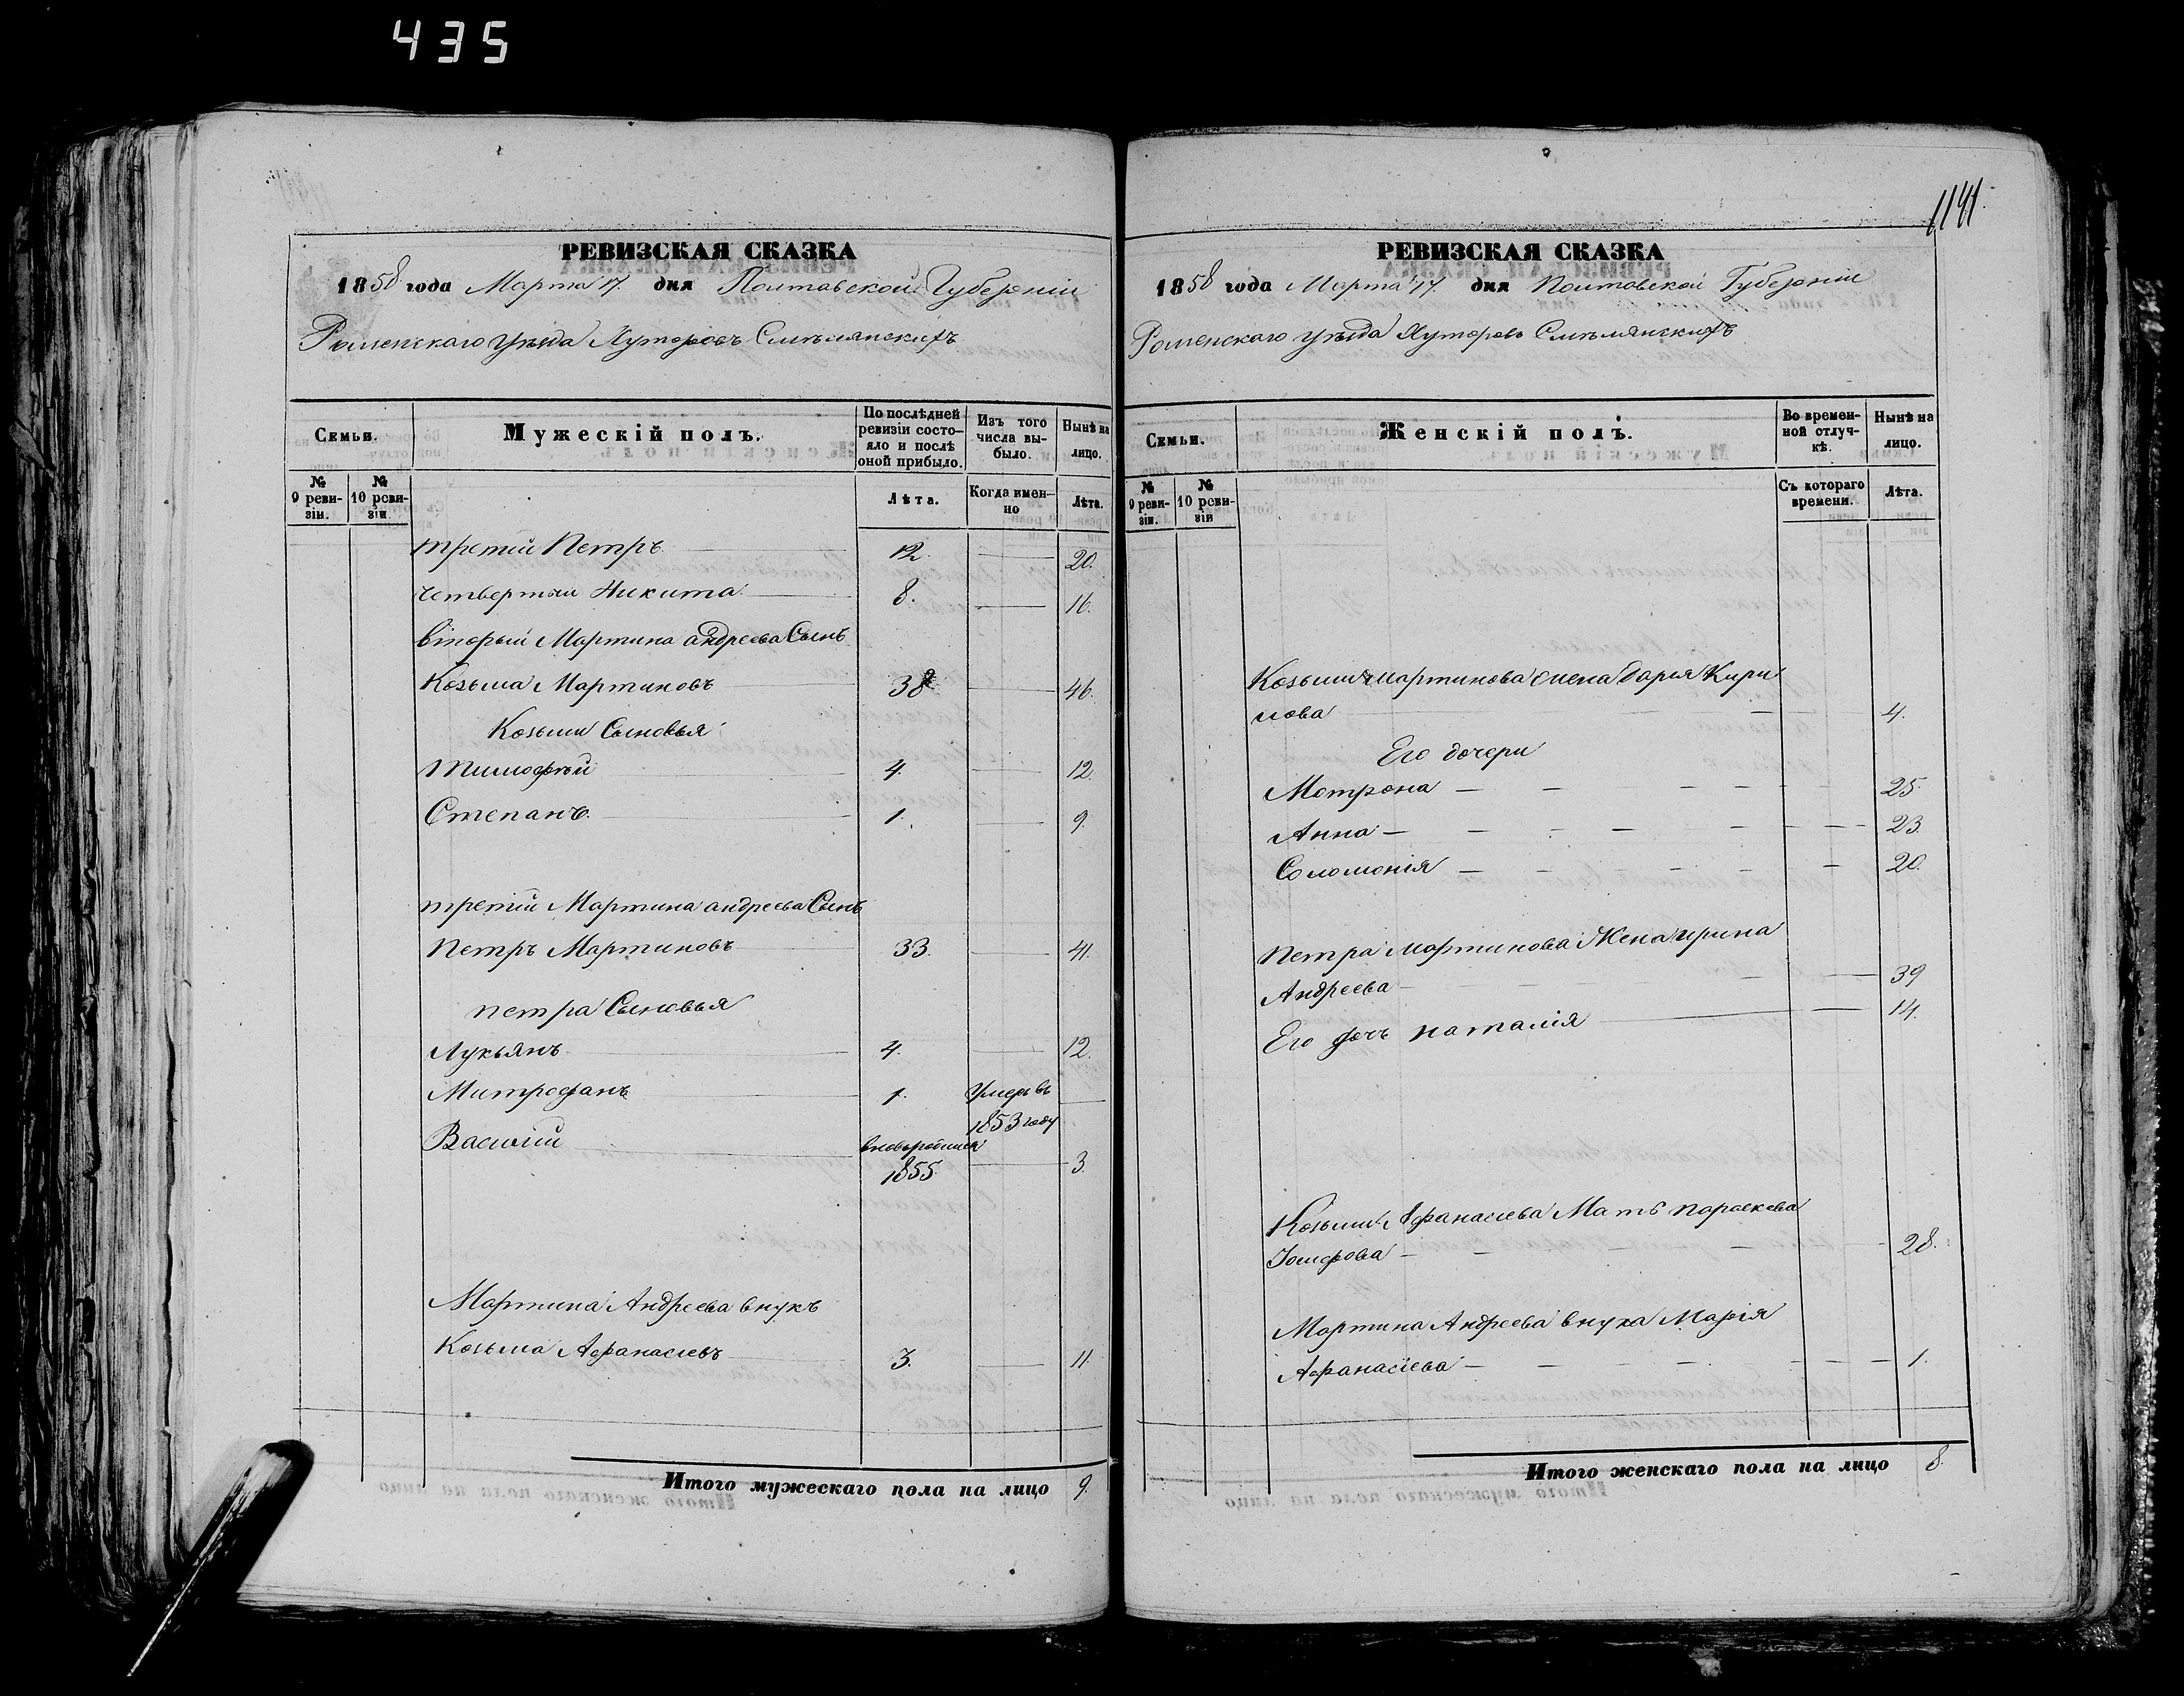 435
РЕВИЗСКАЯ СКАЗКА
1858 года Марта 17. дня Полтавской Губерніи
Роменскаго уѣзда Хуторовъ Смѣлянскихъ
Семьи.
Мужескій полъ.
По послѣдней ревизіи состояло и послѣ оной прибыло.
Изъ того числа выбыло.
Нынѣ на лицо.
№ 9 ревизіи.
№ 10 ревизіи
Лѣта.
Когда именно
Лѣта.
третій Петръ 12. 20.
четвертый Никита 8. 16.
вторый Мартина андреева Сынъ
Козьма Мартиновъ 38 46.
Козьми Сыновья
Тимофѣй 4. 12.
Степанъ 1. 9.
третій Мартина андреева Сынъ
Петръ Мартиновъ 33. 41.
петра Сыновья
Лукьянъ 4. 12.
Митрофанъ 1. Умеръ въ
1853 году
Василій вновьродился
1855 3.
Мартина Андреева внукъ
Козьма Афанасіевъ 3. 11.
Итого мужескаго пола на лицо 9.
1141.
РЕВИЗСКАЯ СКАЗКА
1858 года Марта 17. дня Полтавской Губерніи
Роменскаго уѣзда Хуторовъ Смѣлянскихъ
Семьи.
Женскій полъ.
Во временной отлучкѣ.
Нынѣ на лицо.
№ 9 ревизіи.
№ 10 ревизіи
Съ котораго времени.
Лѣта.
Козьми мартинова жена дария Кири
лова 4.
Его дочери
Мотрона 25.
Анна 23.
Соломонія 20.
петра мартинова Жена ирина
Андреева 39
Его дочь наталія 14.
Козьми Афанасіева Мать параскева
Іосифова 28.
Мартина Андреева внука Марія
Афанасіева 1.
Итого женскаго пола на лицо 8.